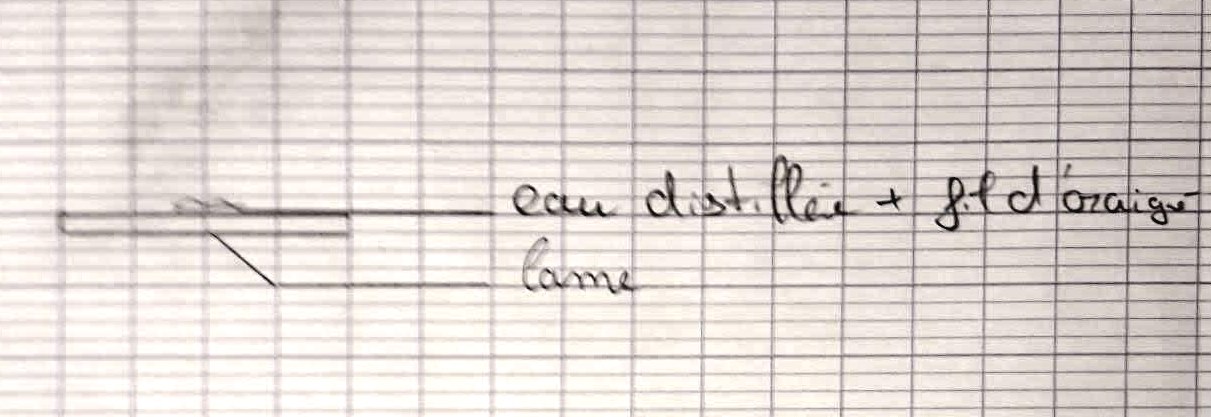 eau distillée + fil d'oraigné
lame